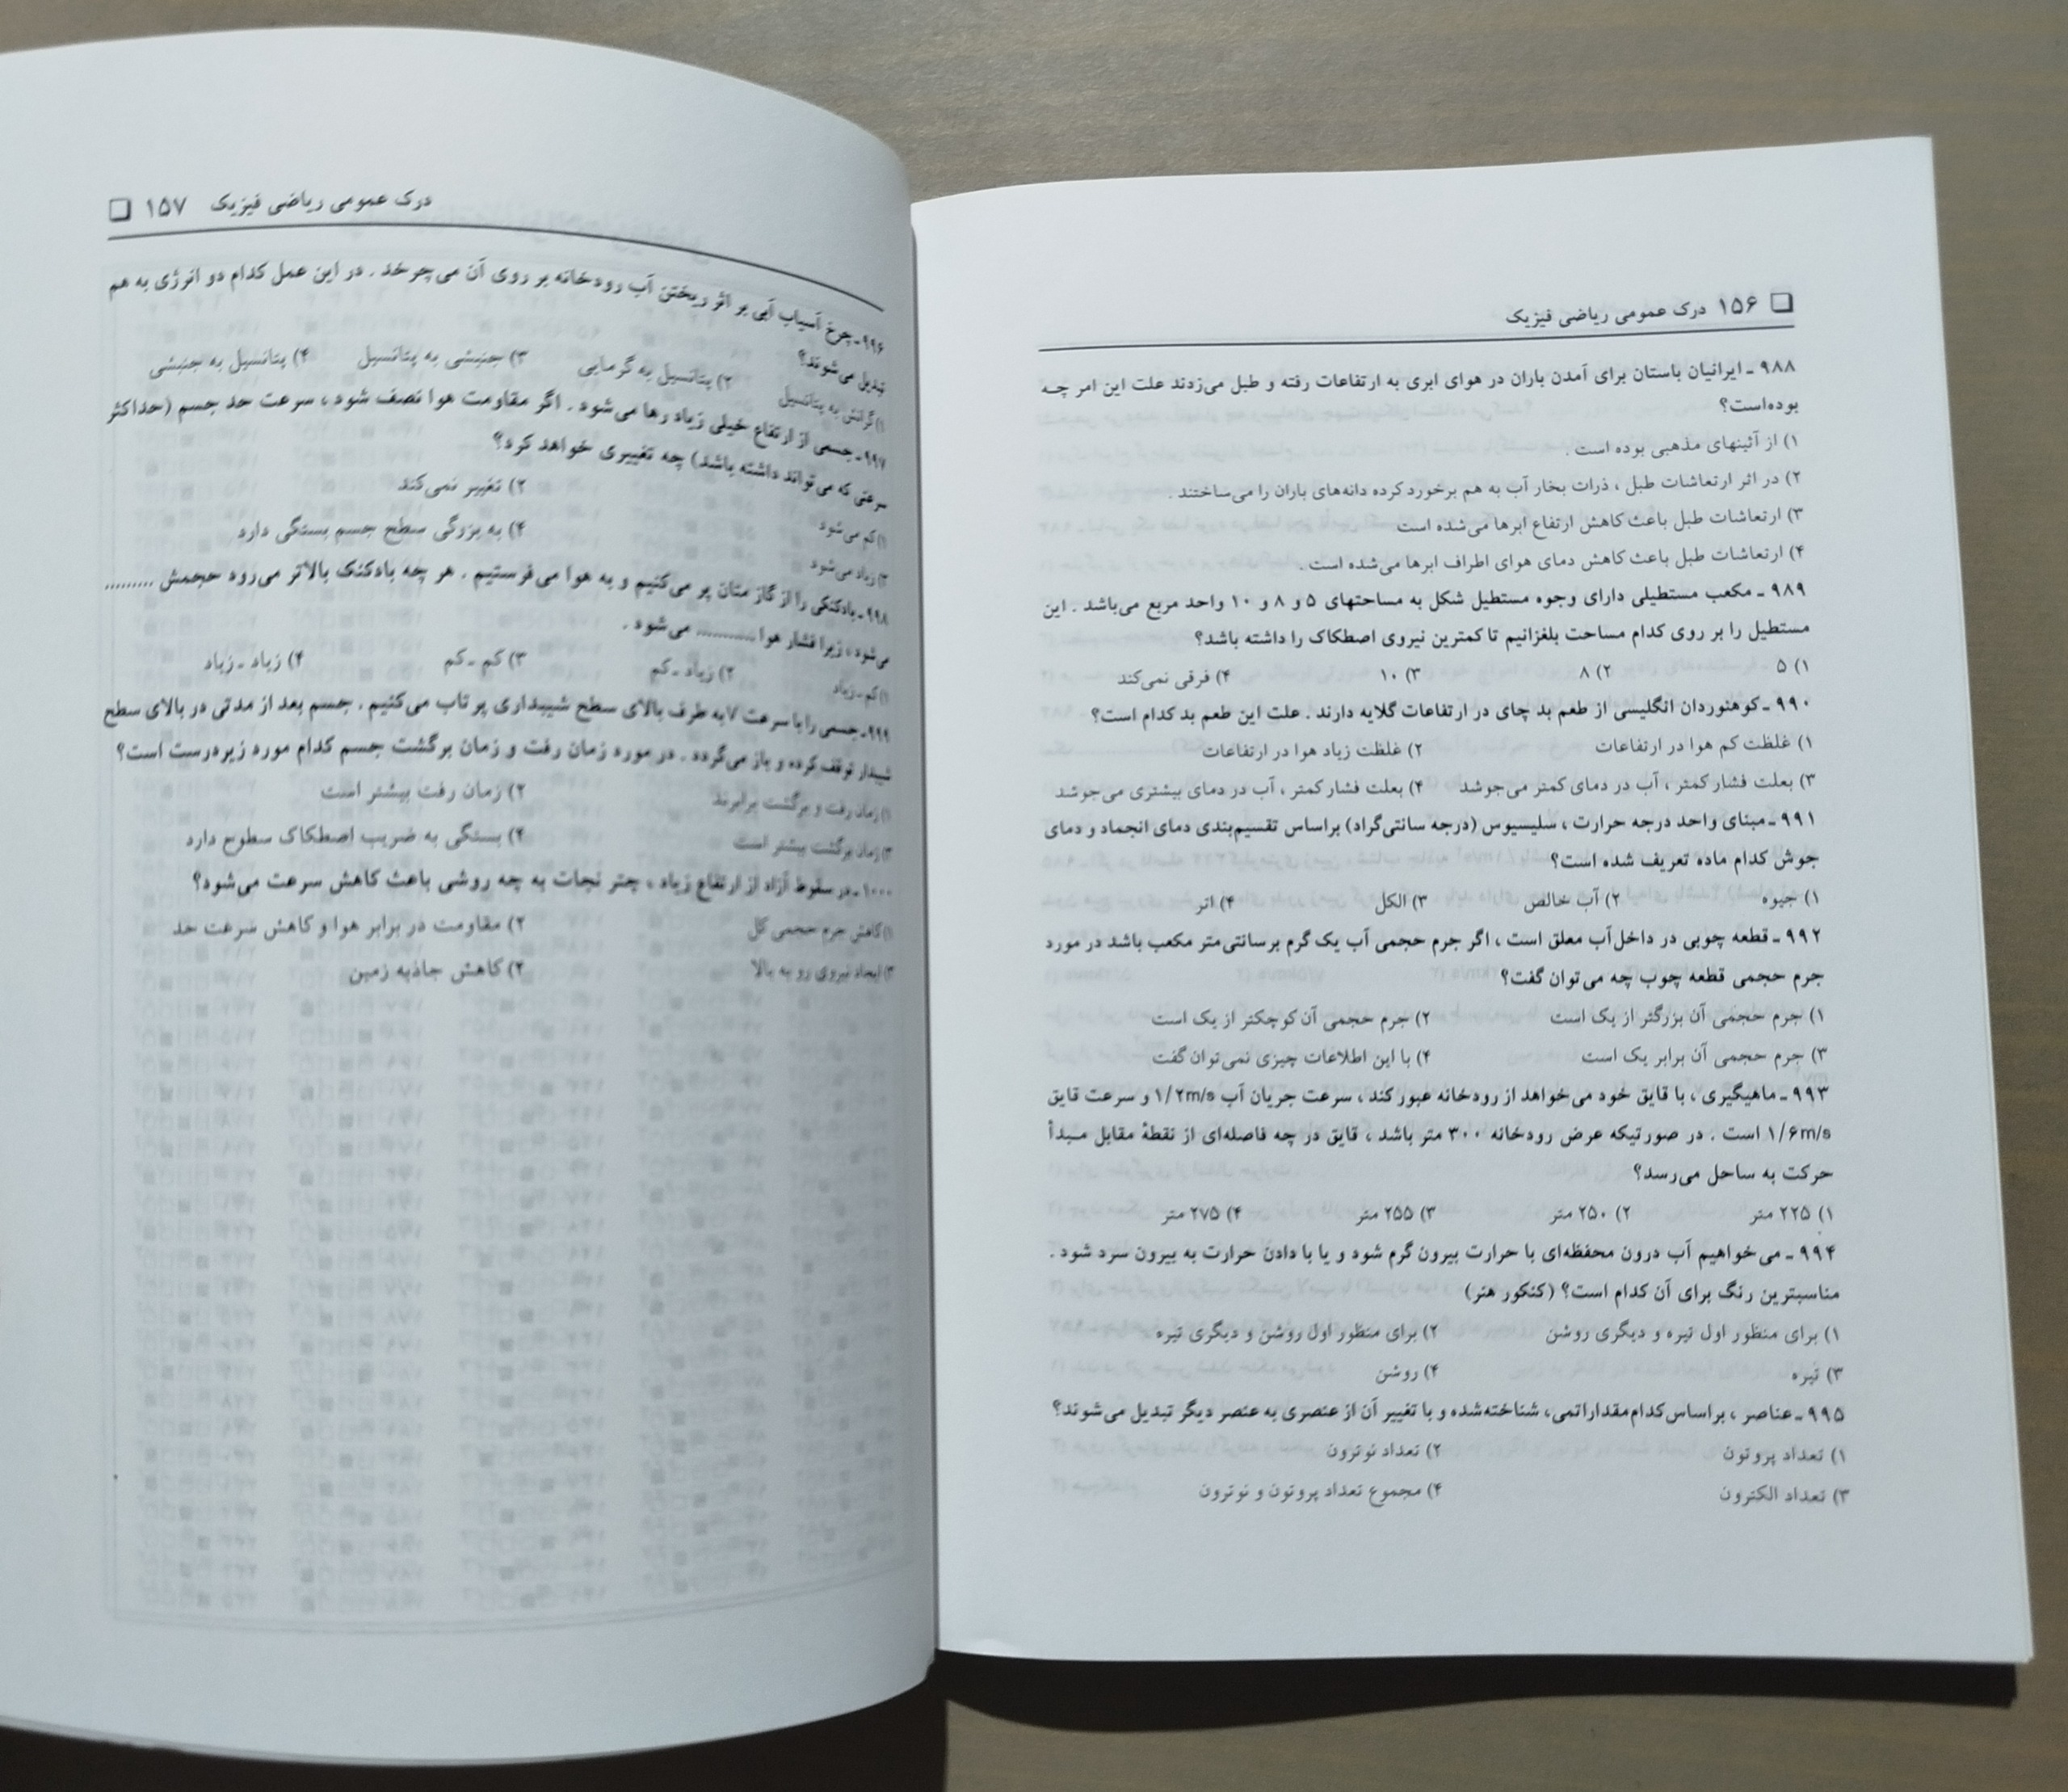 ❑ ۱۵۶ درک عمومی ریاضی فیزیک
۹۸۸ ـ ایرانیان باستان برای آمدن باران در هوای ابری به ارتفاعات رفته و طبل می‌زدند علت این امر چه
بوده‌است؟
۱) از آئینهای مذهبی بوده است .
۲) در اثر ارتعاشات طبل ، ذرات بخار آب به هم برخورد کرده دانه‌های باران را می‌ساختند .
۳) ارتعاشات طبل باعث کاهش ارتفاع ابرها می‌شده است
۴) ارتعاشات طبل باعث کاهش دمای هوای اطراف ابرها می‌شده است .
۹۸۹ ـ مکعب مستطیلی دارای وجوه مستطیل شکل به مساحتهای ۵ و ۸ و ۱۰ واحد مربع می‌باشد . این
مستطیل را بر روی کدام مساحت بلغزانیم تا کمترین نیروی اصطکاک را داشته باشد؟
۱) ۵ ۲) ۸ ۳) ۱۰ ۴) فرقی نمی‌کند
۹۹۰ ـ کوهنوردان انگلیسی از طعم بد چای در ارتفاعات گلایه دارند . علت این طعم بد کدام است؟
۱) غلظت کم هوا در ارتفاعات ۲) غلظت زیاد هوا در ارتفاعات
۳) بعلت فشار کمتر ، آب در دمای کمتر می‌جوشد ۴) بعلت فشار کمتر ، آب در دمای بیشتری می‌جوشد
۹۹۱ ـ مبنای واحد درجه حرارت ، سلیسیوس (درجه سانتی‌گراد) براساس تقسیم‌بندی دمای انجماد و دمای
جوش کدام ماده تعریف شده است؟
۱) جیوه ۲) آب خالص ۳) الکل ۴) اتر
۹۹۲ ـ قطعه چوبی در داخل آب معلق است ، اگر جرم حجمی آب یک گرم بر سانتی‌متر مکعب باشد در مورد
جرم حجمی قطعه چوب چه می‌توان گفت؟
۱) جرم حجمی آن بزرگتر از یک است ۲) جرم حجمی آن کوچکتر از یک است
۳) جرم حجمی آن برابر یک است ۴) با این اطلاعات چیزی نمی‌توان گفت
۹۹۳ ـ ماهیگیری ، با قایق خود می‌خواهد از رودخانه عبور کند ، سرعت جریان آب ۱/۲m/s و سرعت قایق
۱/۶m/s است . در صورتیکه عرض رودخانه ۳۰۰ متر باشد ، قایق در چه فاصله‌ای از نقطهٔ مقابل مبدأ
حرکت به ساحل می‌رسد؟
۱) ۲۲۵ متر ۲) ۲۵۰ متر ۳) ۲۵۵ متر ۴) ۲۷۵ متر
۹۹۴ ـ می‌خواهیم آب درون محفظه‌ای با حرارت بیرون گرم شود و یا با دادن حرارت به بیرون سرد شود .
مناسبترین رنگ برای آن کدام است؟ (کنکور هنر)
۱) برای منظور اول تیره و دیگری روشن ۲) برای منظور اول روشن و دیگری تیره
۳) تیره ۴) روشن
۹۹۵ ـ عناصر ، براساس کدام مقدار اتمی، شناخته‌شده و با تغییر آن از عنصری به عنصر دیگر تبدیل می‌شوند؟
۱) تعداد پروتون ۲) تعداد نوترون
۳) تعداد الکترون ۴) مجموع تعداد پروتون و نوترون
درک عمومی ریاضی فیزیک ۱۵۷ ❑
۹۹۶ـ چرخ آسیاب آبی بر اثر ریختن آب رودخانه بر روی آن می‌چرخد . در این عمل کدام دو انرژی به هم
تبدیل می‌شوند؟
۱) گرانش به پتانسیل ۲) پتانسیل به گرمایی ۳) جنبشی به پتانسیل ۴) پتانسیل به جنبشی
۹۹۷ـ جسمی از ارتفاع خیلی زیاد رها می‌شود . اگر مقاومت هوا نصف شود ، سرعت حد جسم (حداکثر
سرعتی که می‌تواند داشته باشد) چه تغییری خواهد کرد؟
۱) کم می‌شود ۲) تغییر نمی‌کند
۳) زیاد می‌شود ۴) به بزرگی سطح جسم بستگی دارد
۹۹۸ـ بادکنکی را از گاز متان پر می‌کنیم و به هوا می‌فرستیم . هر چه بادکنک بالاتر می‌رود حجمش .........
می‌شود ، زیرا فشار هوا ........... می‌شود .
۱) کم ـ زیاد ۲) زیاد ـ کم ۳) کم ـ کم ۴) زیاد ـ زیاد
۹۹۹ـ جسمی را با سرعت ۷ به طرف بالای سطح شیبداری پرتاب می‌کنیم . جسم بعد از مدتی در بالای سطح
شیبدار توقف کرده و باز می‌گردد . در مورد زمان رفت و زمان برگشت جسم کدام مورد زیر درست است؟
۱) زمان رفت و برگشت برابرند ۲) زمان رفت بیشتر است
۳) زمان برگشت بیشتر است ۴) بستگی به ضریب اصطکاک سطوح دارد
۱۰۰۰ـ در سقوط آزاد از ارتفاع زیاد ، چتر نجات به چه روشی باعث کاهش سرعت می‌شود؟
۱) کاهش جرم حجمی کل ۲) مقاومت در برابر هوا و کاهش سرعت حد
۳) ایجاد نیروی رو به بالا ۴) کاهش جاذبه زمین